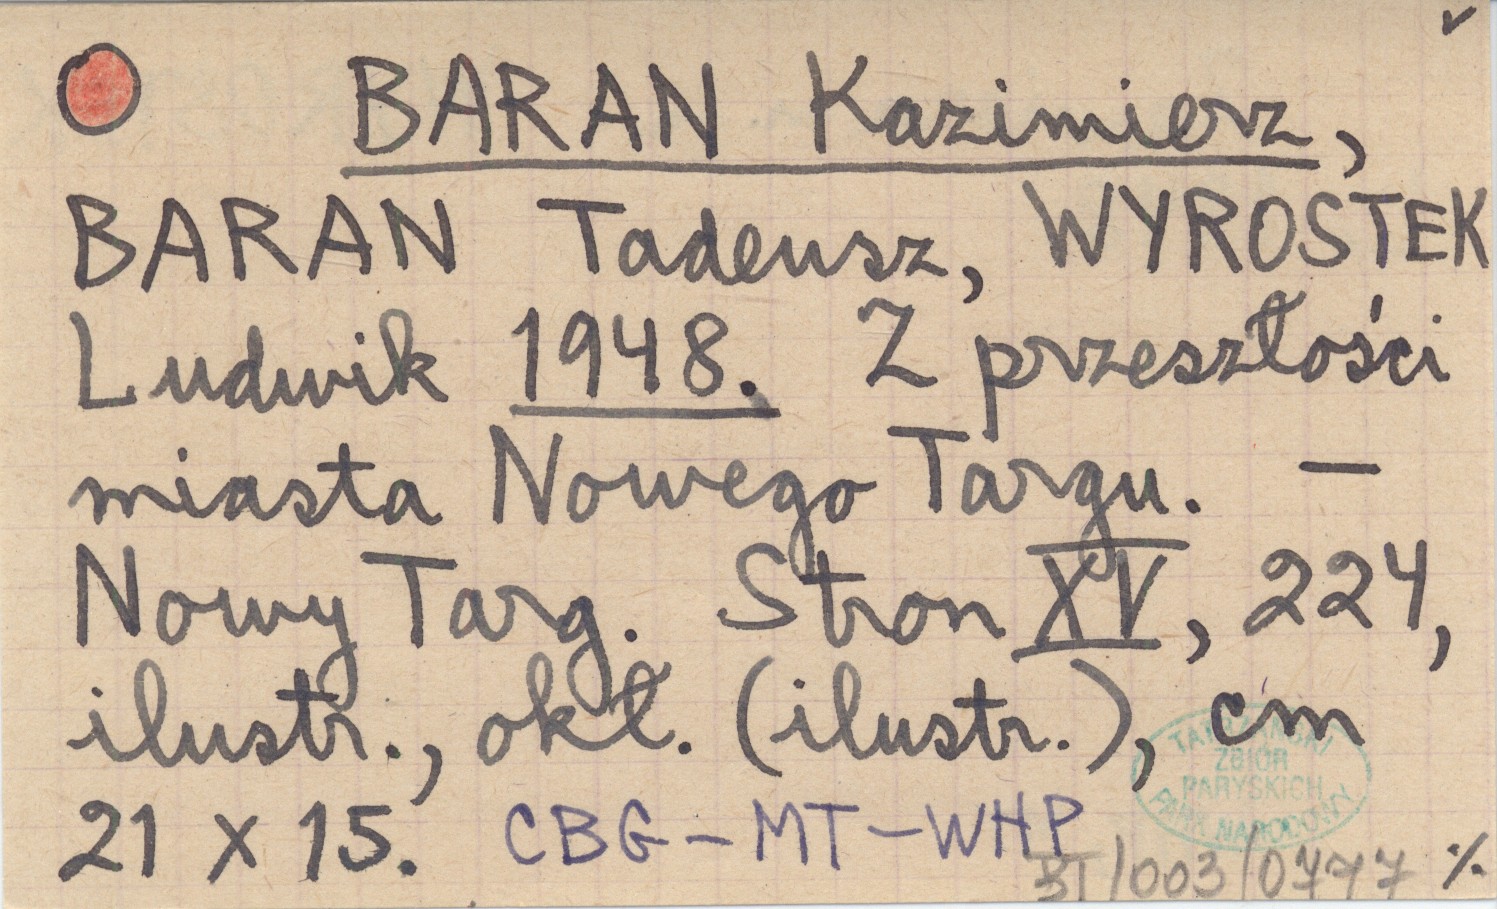 BARAN Kazimierz,
BARAN Tadeusz, WYROSTEK
Ludwik 1948. Z przeszłości
miasta Nowego Targu. —
Nowy Targ. Stron XV, 224,
ilustr., okł. (ilustr.), cm
21 x 15. CBG-MT-WHP
TATRZAŃSKI
ZBIÓR
PARYSKICH
PARK NARODOWY
BT/003/0777 %